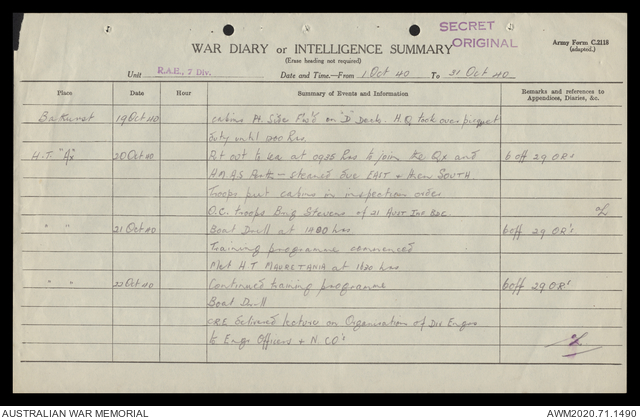 SECRET
ORIGINAL
WAR DIARY or INTELLIGENCE SUMMARY
(Erase heading not required)
Army Form C.2118
(adapted.)
Unit R.A.E., 7 Div. Date and Time.—From 1 Oct 40 To 31 Oct 40
Place Date Hour Summary of Events and Information Remarks and references to Appendices, Diaries, &c.
19 Oct 40 cabins Pt. Side on "D" Deck. H.Q took over
duty until 1200 hrs.
H.T. 20 Oct 40 Put out to sea at 0935 hrs to join the Qx and 6 off 29 OR's
H.M.A.S. Perth – steamed due EAST & then SOUTH.
Troops put cabins in inspection order
O.C. troops Brig Stevens of 21 Aust Inf Bde.
" " 21 Oct 40 Boat Drill at 1400 hrs. 6 off 29 OR's
Training programme commenced
Met H T MAURETANIA at 1620 hrs
" " 22 Oct 40 Continued training programme 6 off 29 OR's
Boat Drill
CRE delivered lecture on Organisation of Div Engrs
to Engr Officers & N.CO's
AUSTRALIAN WAR MEMORIAL
AWM2020.71.1490